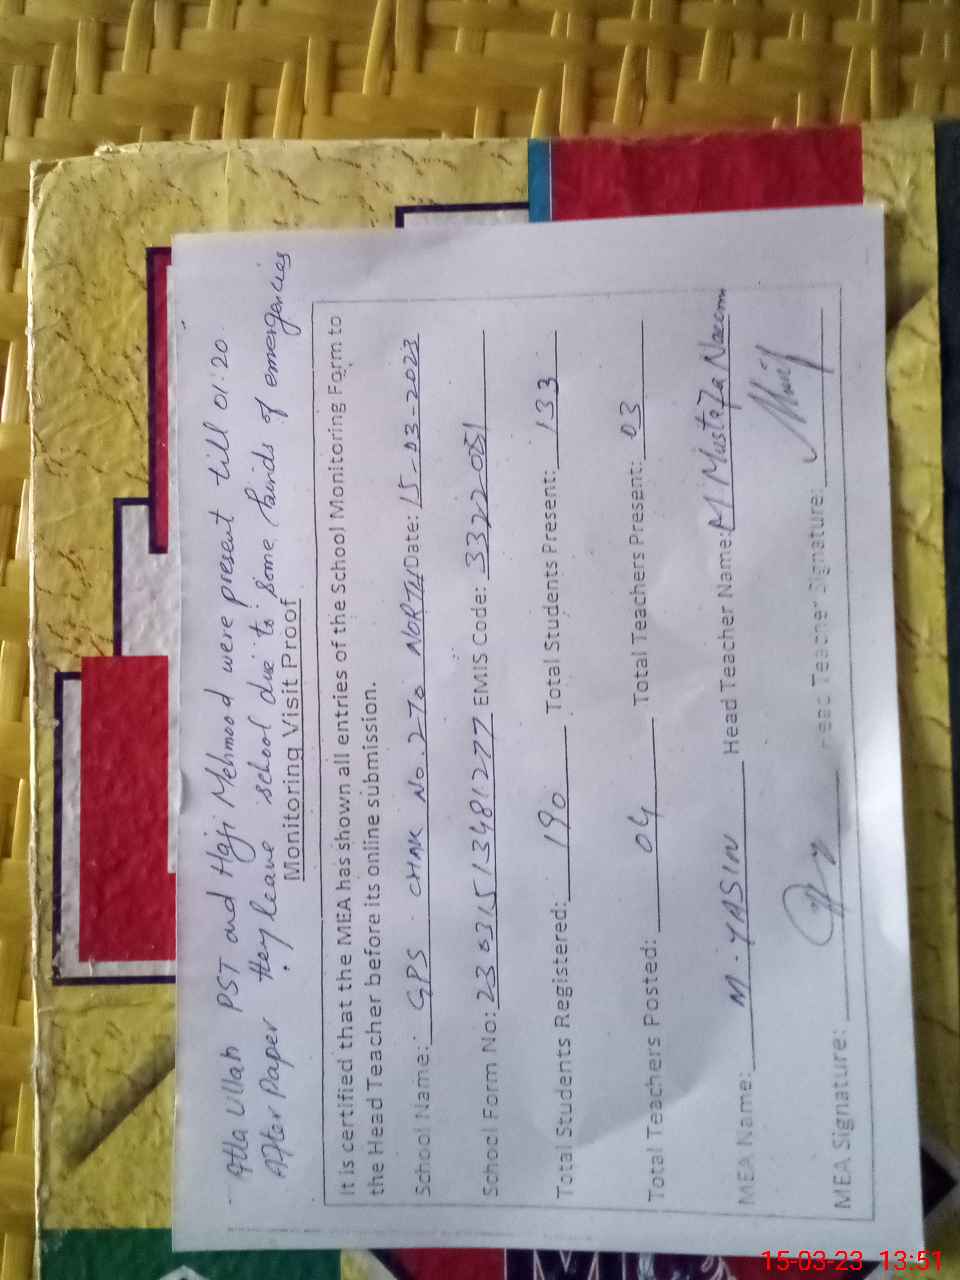 Atta Ullah PST and Haji Mehmood were present till 01:20.
After Paper they leave school due to some kinds of emergencies
Monitoring Visit Proof
It is certified that the MEA has shown all entries of the School Monitoring Form to
the Head Teacher before its online submission.
School Name: GPS CHAK No. 270 NORTH Date: 15-03-2023
School Form No: 23031513481277 EMIS Code: 33222051
Total Students Registered: 190 Total Students Present: 133
Total Teachers Posted: 04 Total Teachers Present: 03
MEA Name: M. YASIN Head Teacher Name: M Mustafa Naeem
MEA Signature: Head Teacher Signature:
15-03-23 13:51